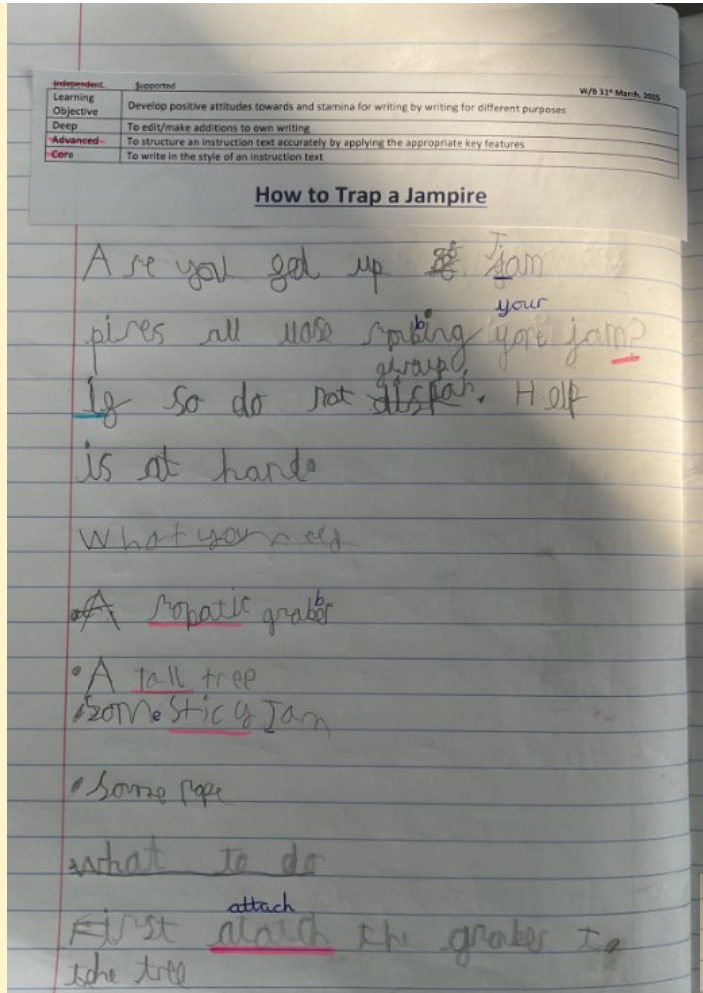 Independent Supported W/B 31st March, 2025
Learning Objective Develop positive attitudes towards and stamina for writing by writing for different purposes
Deep To edit/make additions to own writing
Advanced To structure an instruction text accurately by applying the appropriate key features
Core To write in the style of an instruction text
How to Trap a Jampire
Are you fed up of Jam
your
pires all robbing yore jam?
give up
If so do not dispar. Help
is at hand.
What you need
• A ropatic graber
b
• A tall tree
• Some sticy Jam
• Some rope
what to do
attach
First atatch the graber to
the tree